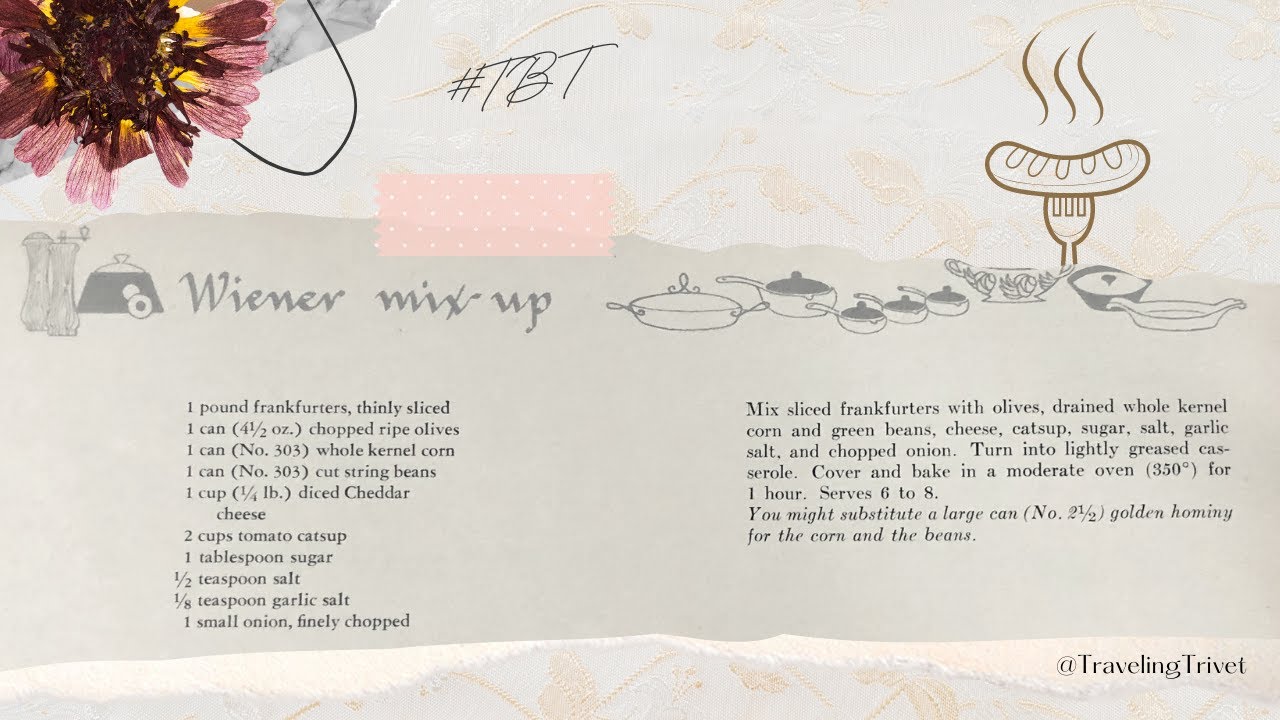 #TBT
Wiener mix-up
1 pound frankfurters, thinly sliced
1 can (4½ oz.) chopped ripe olives
1 can (No. 303) whole kernel corn
1 can (No. 303) cut string beans
1 cup (¼ lb.) diced Cheddar
cheese
2 cups tomato catsup
1 tablespoon sugar
½ teaspoon salt
⅛ teaspoon garlic salt
1 small onion, finely chopped
Mix sliced frankfurters with olives, drained whole kernel
corn and green beans, cheese, catsup, sugar, salt, garlic
salt, and chopped onion. Turn into lightly greased cas-
serole. Cover and bake in a moderate oven (350°) for
1 hour. Serves 6 to 8.
You might substitute a large can (No. 2½) golden hominy
for the corn and the beans.
@TravelingTrivet